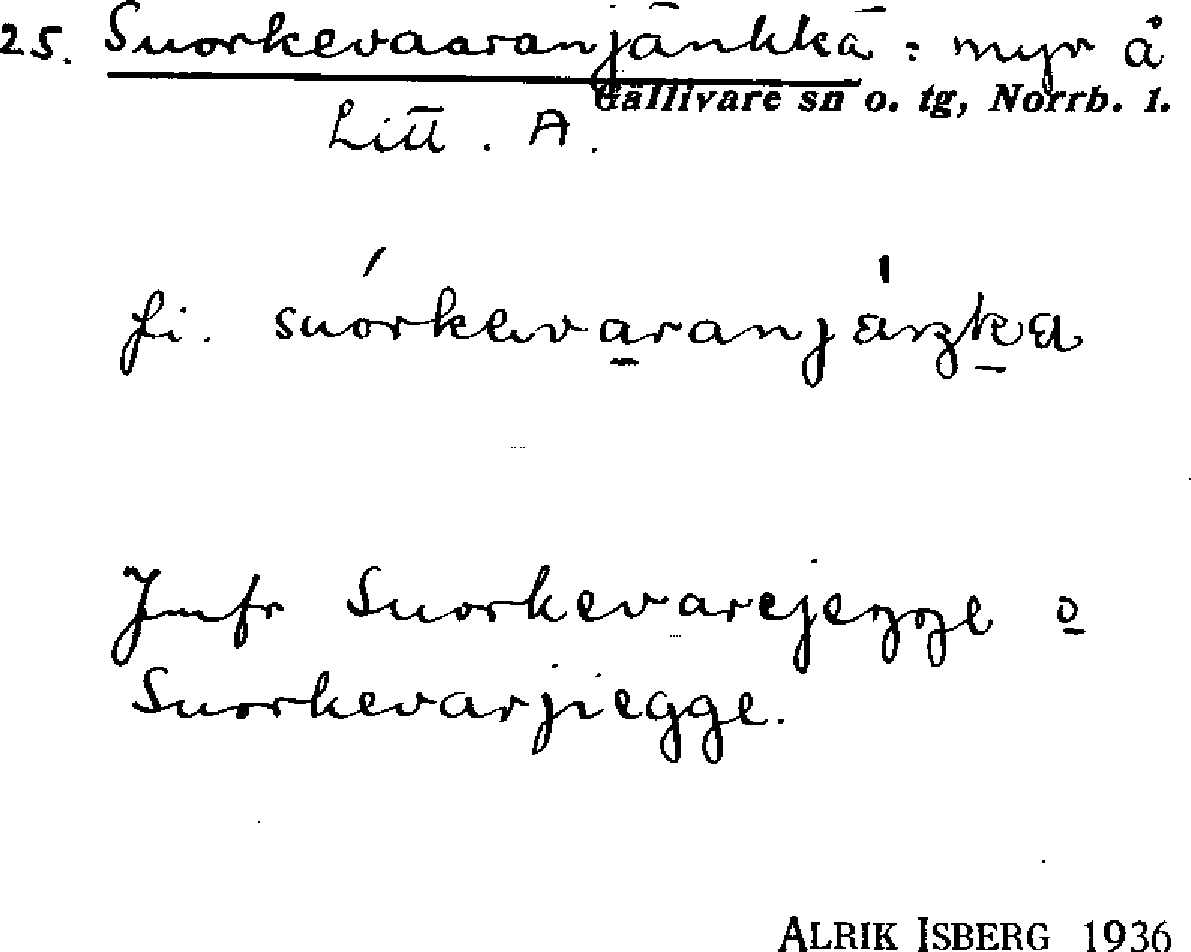 25. Suorkevaaranjänkkä : myr å
Gällivare sn o. tg, Norrb. l.
Litt. A.
fi. suórkevaranjäŋka
Jmfr Suorkevarejegge o
Suorkevarjiegge.
ALRIK ISBERG 1936